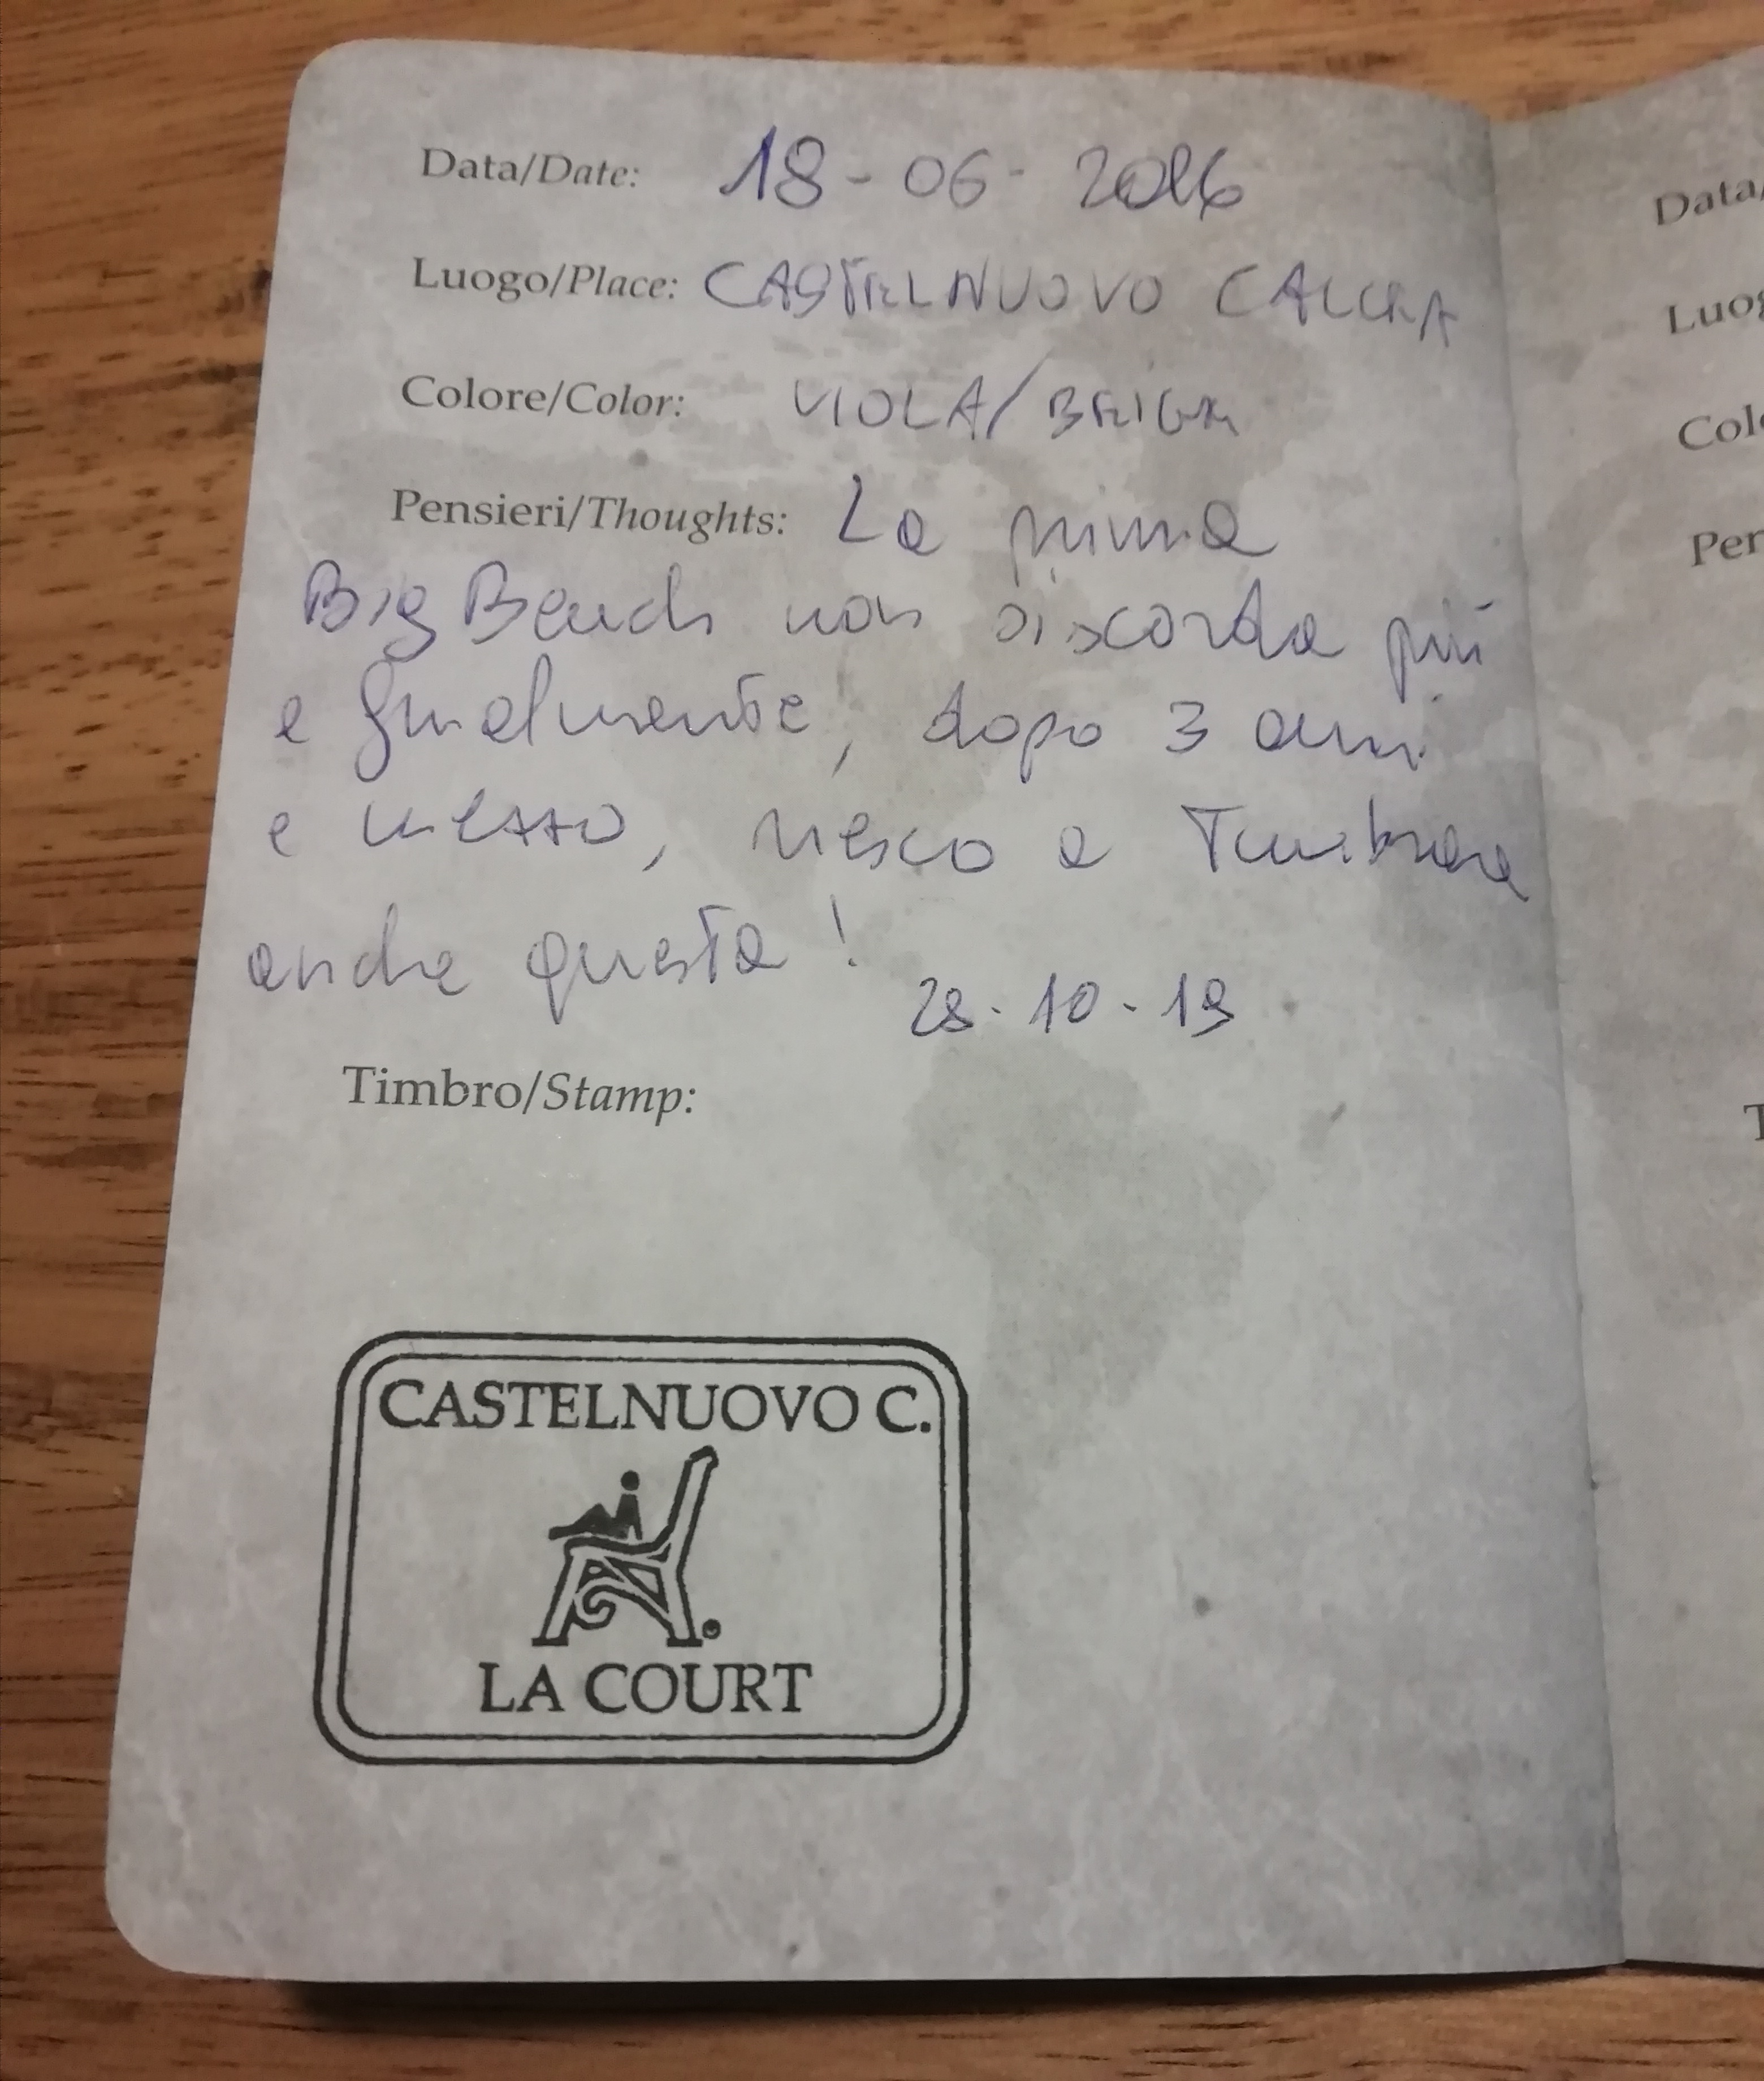 Data/Date: 18-06-2016
Luogo/Place: CASTELNUOVO CALCEA
Colore/Color: VIOLA/BEIGE
Pensieri/Thoughts: La prima
Big Bench non si scorda più
e finalmente, dopo 3 anni
e mezzo, riesco a Timbrare
anche questa!
28-10-19
Timbro/Stamp:
CASTELNUOVO C.
LA COURT
Data/
Luog
Colo
Per
T